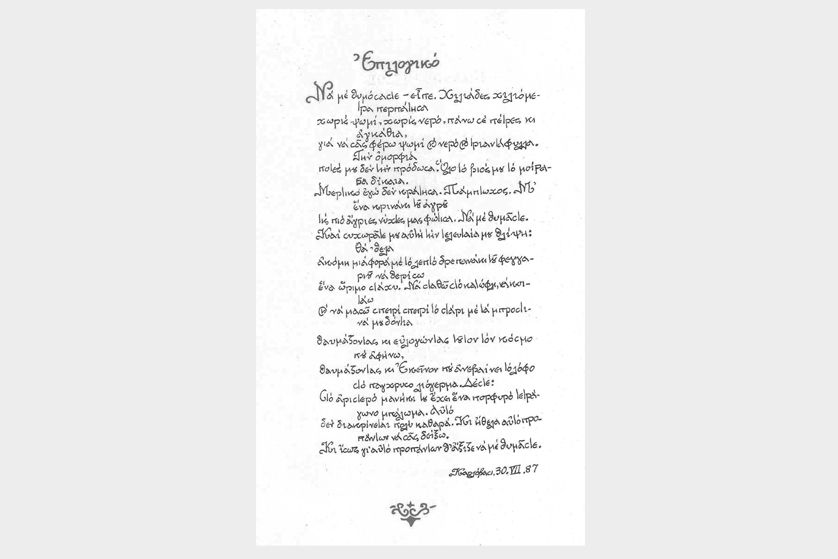 Ἐπιλογικό
Νά μέ θυμόσαστε – εἶπε. Χιλιάδες χιλιόμε-
τρα περπάτησα
χωρίς ψωμί, χωρίς νερό, πάνω σέ πέτρες κι
ἀγκάθια,
γιά νά σᾶς φέρω ψωμί ϗ νερό ϗ τριαντάφυλλα.
Τήν ὀμορφιά
ποτές μου δέν τήν πρόδωσα. Ὅλο τό βιός μου τό μοίρα-
σα δίκαια.
Μερτικό ἐγώ δέν κράτησα. Πάμπτωχος. Μ'
ἕνα κρινάκι τοῦ ἀγροῦ
τίς πιό ἄγριες νύχτες μας φώτισα. Νά μέ θυμᾶστε.
Καί συχωρᾶτε μου αὐτή τήν τελευταία μου θλίψη:
θά 'θελα
ἀκόμη μιά φορά μέ τό λεπτό δρεπανάκι τοῦ φεγγα-
ριοῦ νά θερίσω
ἕνα ὥριμο στάχυ. Νά σταθῶ στό κατώφλι, νά κοι-
τάω
ϗ νά μασῶ σπειρί σπειρί τό στάρι μέ τά μπροστι-
νά μου δόντια
θαυμάζοντας κι εὐλογώντας τοῦτον τόν κόσμο
πού ἀφήνω,
θαυμάζοντας κι Ἐκεῖνον πού ἀνεβαίνει τό λόφο
στό πάγχρυσο λιόγερμα. Δέστε:
Στό ἀριστερό μανίκι του ἔχει ἕνα πορφυρό τετρά-
γωνο μπάλωμα. Αὐτό
δέν διακρίνεται πολύ καθαρά. Κι ἤθελα αὐτό προ-
πάντων νά σᾶς δείξω.
Κι ἴσως γι' αὐτό προπάντων θ' ἄξιζε νά μέ θυμᾶστε.
Καρλόβασι, 30.VII.87